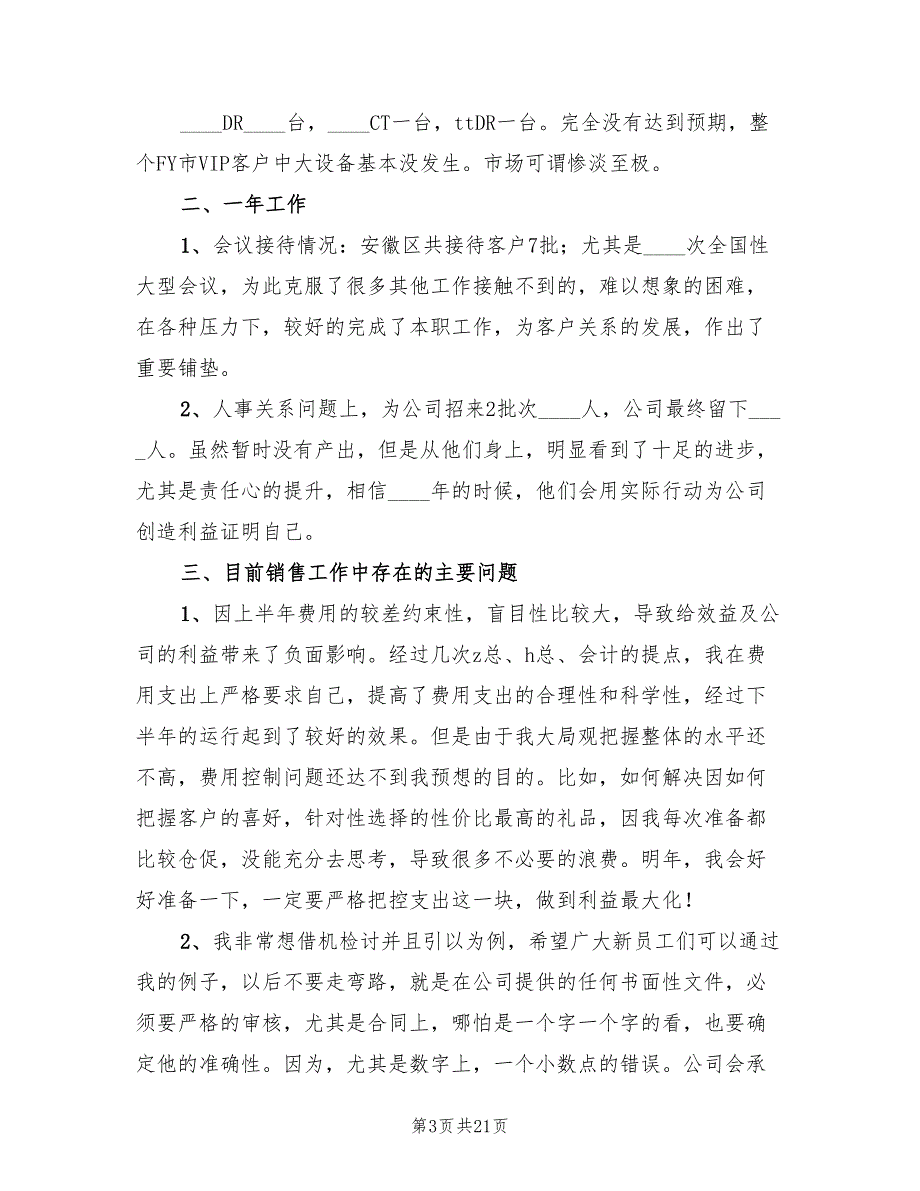 ____DR____台，____CT一台，ttDR一台。完全没有达到预期，整
个FY市VIP客户中大设备基本没发生。市场可谓惨淡至极。
二、一年工作
1、会议接待情况：安徽区共接待客户7批；尤其是____次全国性
大型会议，为此克服了很多其他工作接触不到的，难以想象的困难，
在各种压力下，较好的完成了本职工作，为客户关系的发展，作出了
重要铺垫。
2、人事关系问题上，为公司招来2批次____人，公司最终留下___
_人。虽然暂时没有产出，但是从他们身上，明显看到了十足的进步，
尤其是责任心的提升，相信____年的时候，他们会用实际行动为公司
创造利益证明自己。
三、目前销售工作中存在的主要问题
1、因上半年费用的较差约束性，盲目性比较大，导致给效益及公
司的利益带来了负面影响。经过几次z总、h总、会计的提点，我在费
用支出上严格要求自己，提高了费用支出的合理性和科学性，经过下
半年的运行起到了较好的效果。但是由于我大局观把握整体的水平还
不高，费用控制问题还达不到我预想的目的。比如，如何解决因如何
把握客户的喜好，针对性选择的性价比最高的礼品，因我每次准备都
比较仓促，没能充分去思考，导致很多不必要的浪费。明年，我会好
好准备一下，一定要严格把控支出这一块，做到利益最大化！
2、我非常想借机检讨并且引以为例，希望广大新员工们可以通过
我的例子，以后不要走弯路，就是在公司提供的任何书面性文件，必
须要严格的审核，尤其是合同上，哪怕是一个字一个字的看，也要确
定他的准确性。因为，尤其是数字上，一个小数点的错误。公司会承
第3页共21页